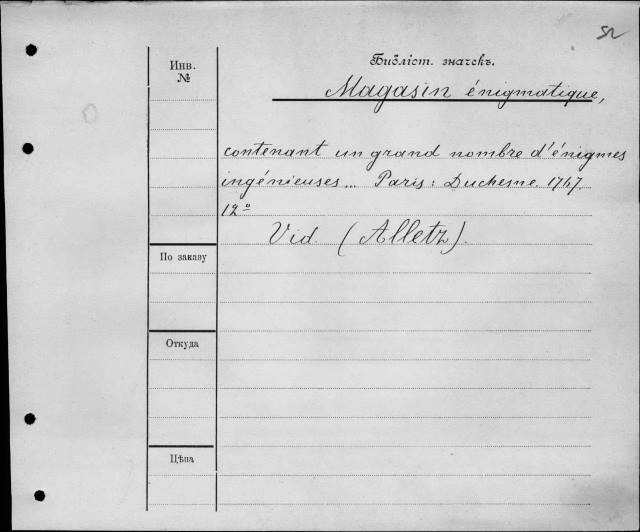 52
Инв.
№
Библіот. значекъ.
Magasin énigmatique,
contenant un grand nombre d'énigmes
ingénieuses... Paris: Duchesne. 1767.
12º
Vid. (Alletz).
По заказу
Откуда
Цѣна